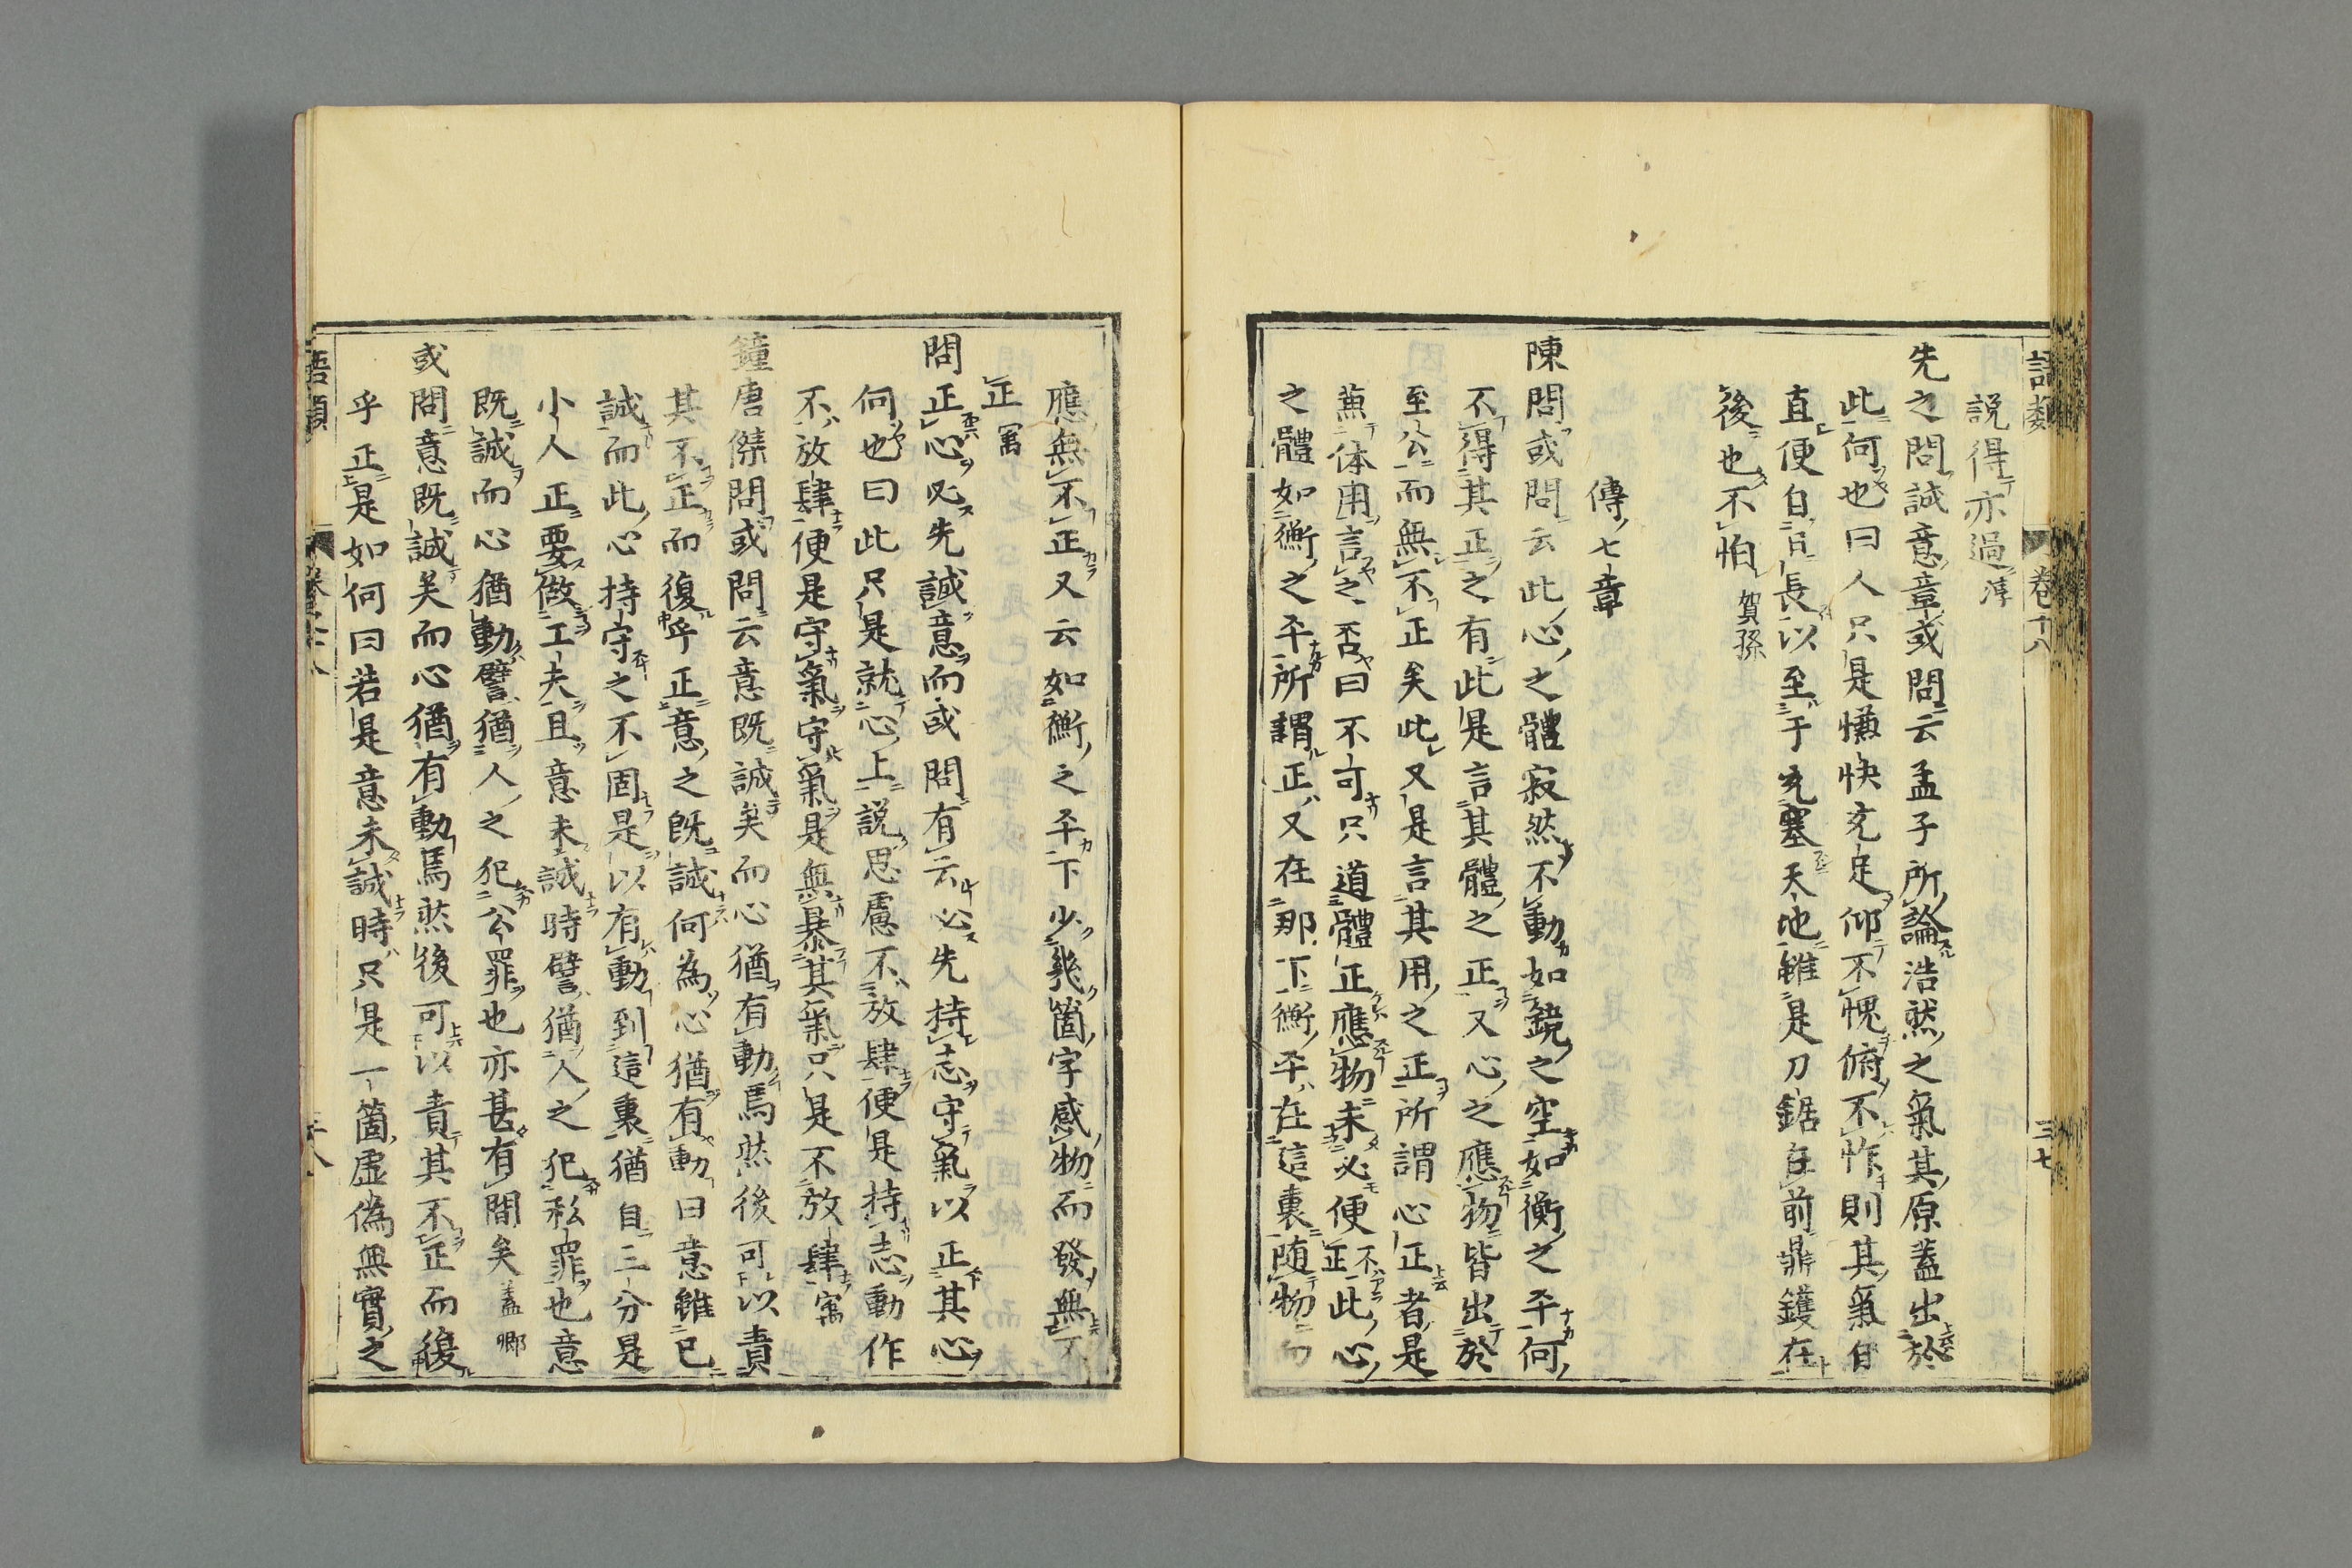 語類 卷十八 三七
說得亦過淳
先之問誠意章或問云孟子所論浩然之氣其原蓋出於
此何也曰人只是慊快充足仰不愧俯不怍則其氣自
直便自日長以至于充塞天地雖是刀鋸在前鼎鑊在
後也不怕賀孫
傳七章
陳問或問云此心之體寂然不動如鏡之空如衡之平何
不得其正之有此是言其體之正又心之應物皆出於
至公而無不正矣此又是言其用之正所謂心正者是
兼体用言之否曰不可只道體正應物未必便正此心
之體如衡之平所謂正又在那下衡平在這裏随物而
應無不正又云如衡之平下少幾箇字感物而發無不
正㝢
問正心必先誠意而或問有云必先持志守氣以正其心
何也曰此只是就心上說思慮不放肆便是持志動作
不放肆便是守氣守氣是無暴其氣只是不放肆㝢
鐘唐傑問或問云意既誠矣而心猶有動焉然後可以責
其不正而復乎正意之既誠何為心猶有動曰意雖已
誠而此心持守之不固是以有動到這裏猶自三分是
小人正要做工夫且意未誠時譬猶人之犯私罪也意
既誠而心猶動譬猶人之犯公罪也亦甚有間矣蓋卿
或問意既誠矣而心猶有動焉然後可以責其不正而復
乎正是如何曰若是意未誠時只是一箇虛偽無實之
語類